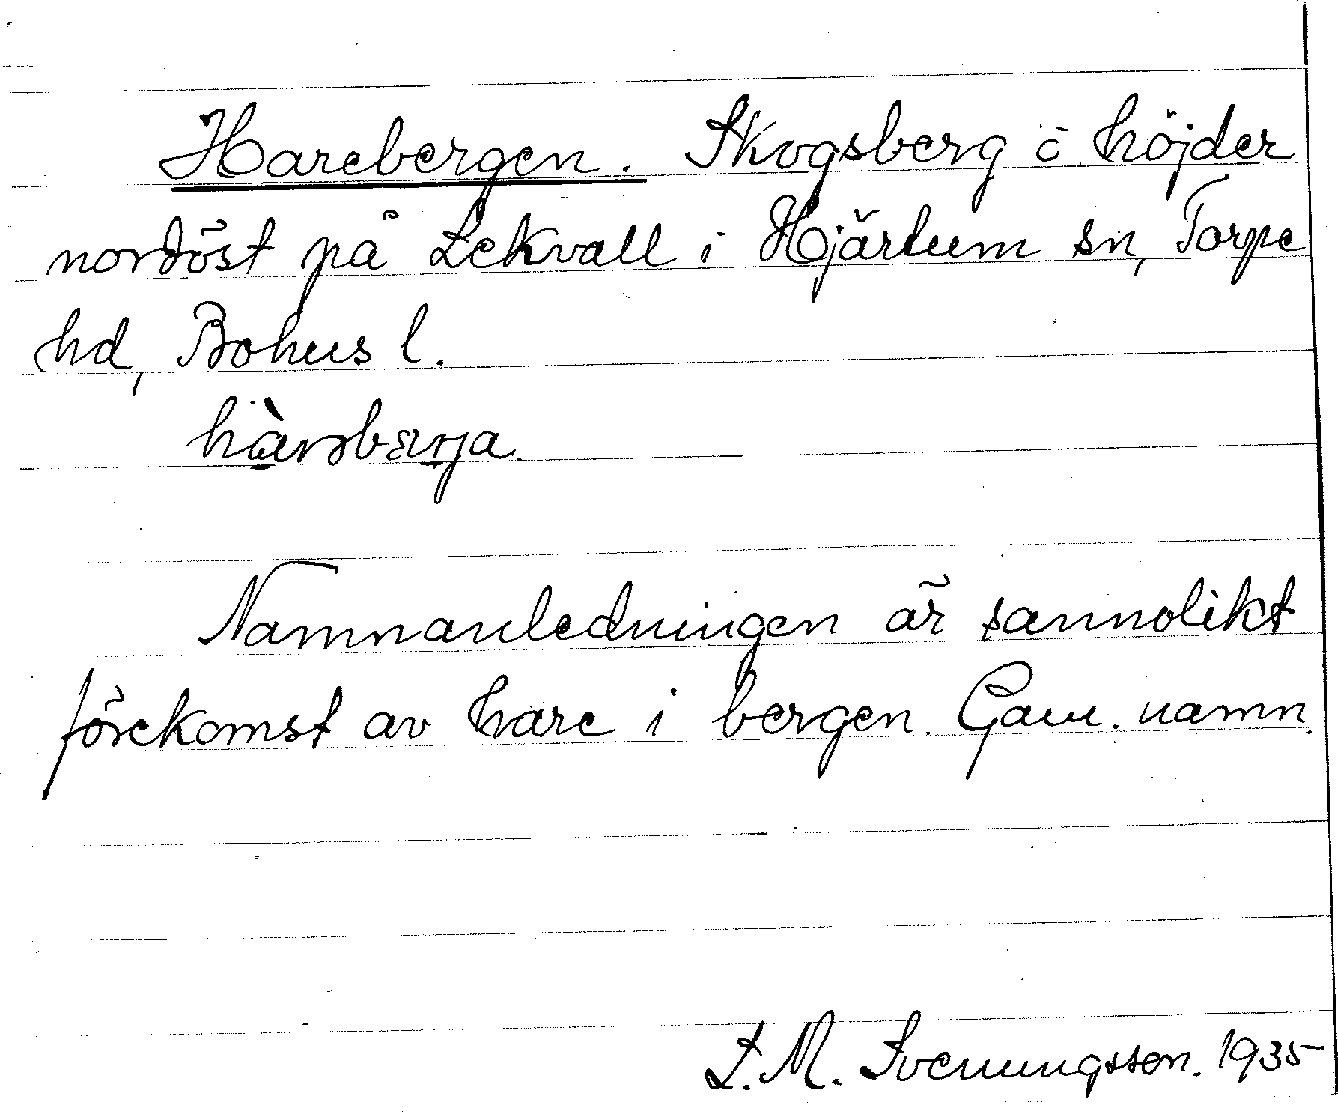 Harebergen. Skogsberg o höjder
nordöst på Lekvall i Hjärtum sn, Torpe
hd, Bohus l.
Namnanledningen är sannolikt
förekomst av hare i bergen. Gam. namn.
L. M. Svenungsson. 1935